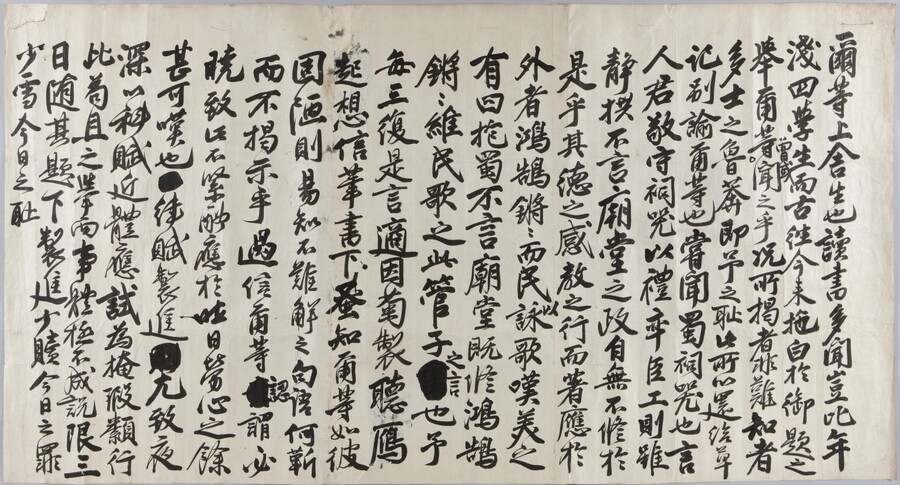 爾等上舍生也讀書多聞豈比年
淺四學生而古往今未拖白於御題之
擧爾等曾或聞之乎況所揭者非難知者
多士之魯莽即予之恥此所以還給草
記別諭爾等也嘗聞蜀祠器也言
人君敬守祠器以禮率臣工則雖
靜拱不言廟堂之政自無不修於
是乎其德之感教之行而著應於
外者鴻鵠鏘〻而民詠以歌嘆美之
有曰抱蜀不言廟堂旣修鴻鵠
鏘〻維民歌之此管子之言也予
每三復是言適因菊製聽鴈
起想信筆書下蚤知爾等如彼
固陋則易知不難解之句語何靳
而不揭示乎過信爾等認謂必
曉致此不緊酬應於吐日勞心之餘
甚可嘆也律賦製進尤致夜
深以科賦近體應試為掩瑕纇行
此苟且之擧而事體極不成說限三
日隨其題下製進少贖今日之罪
少雪今日之恥